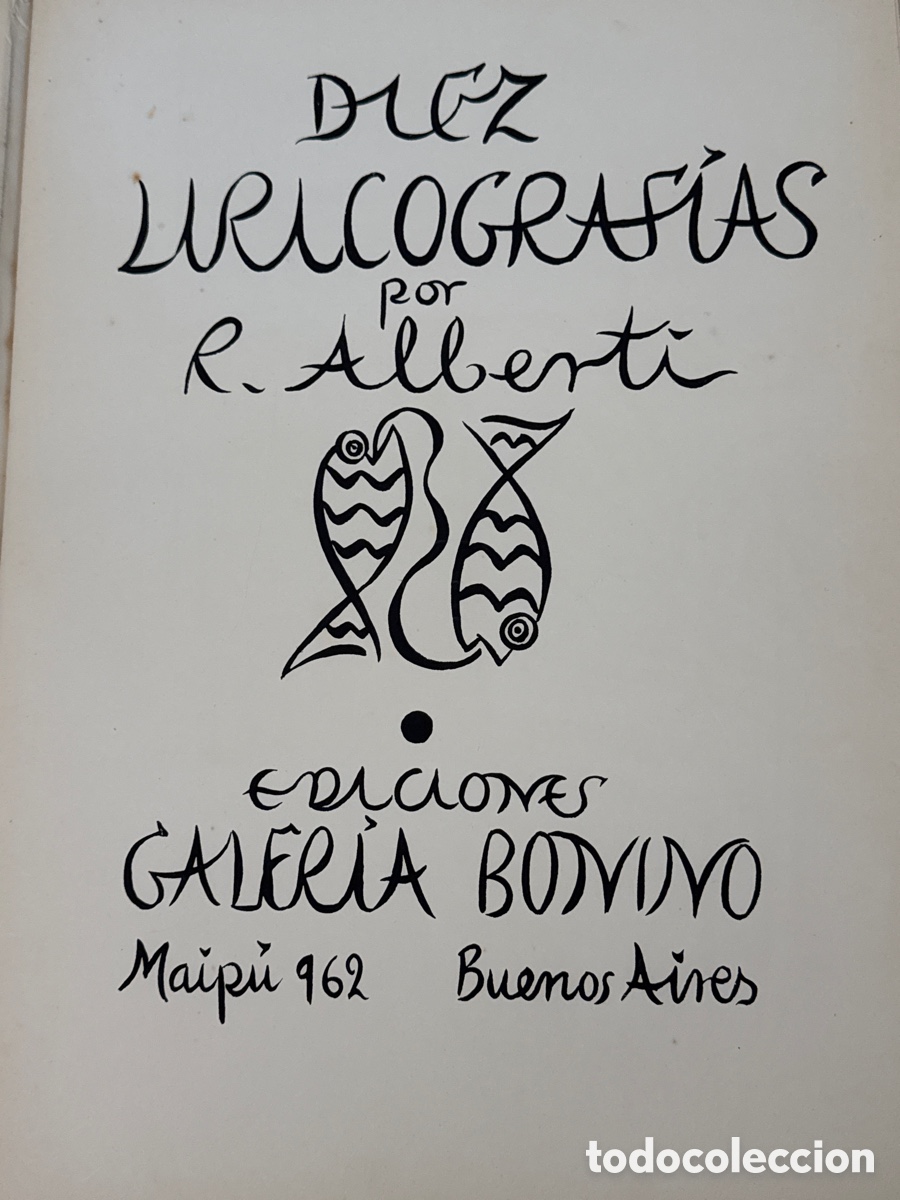 DIEZ
LIRICOGRAFÍAS
por
R. Alberti
EDICIONES
GALERÍA BONINO
Maipú 962 Buenos Aires
todocoleccion